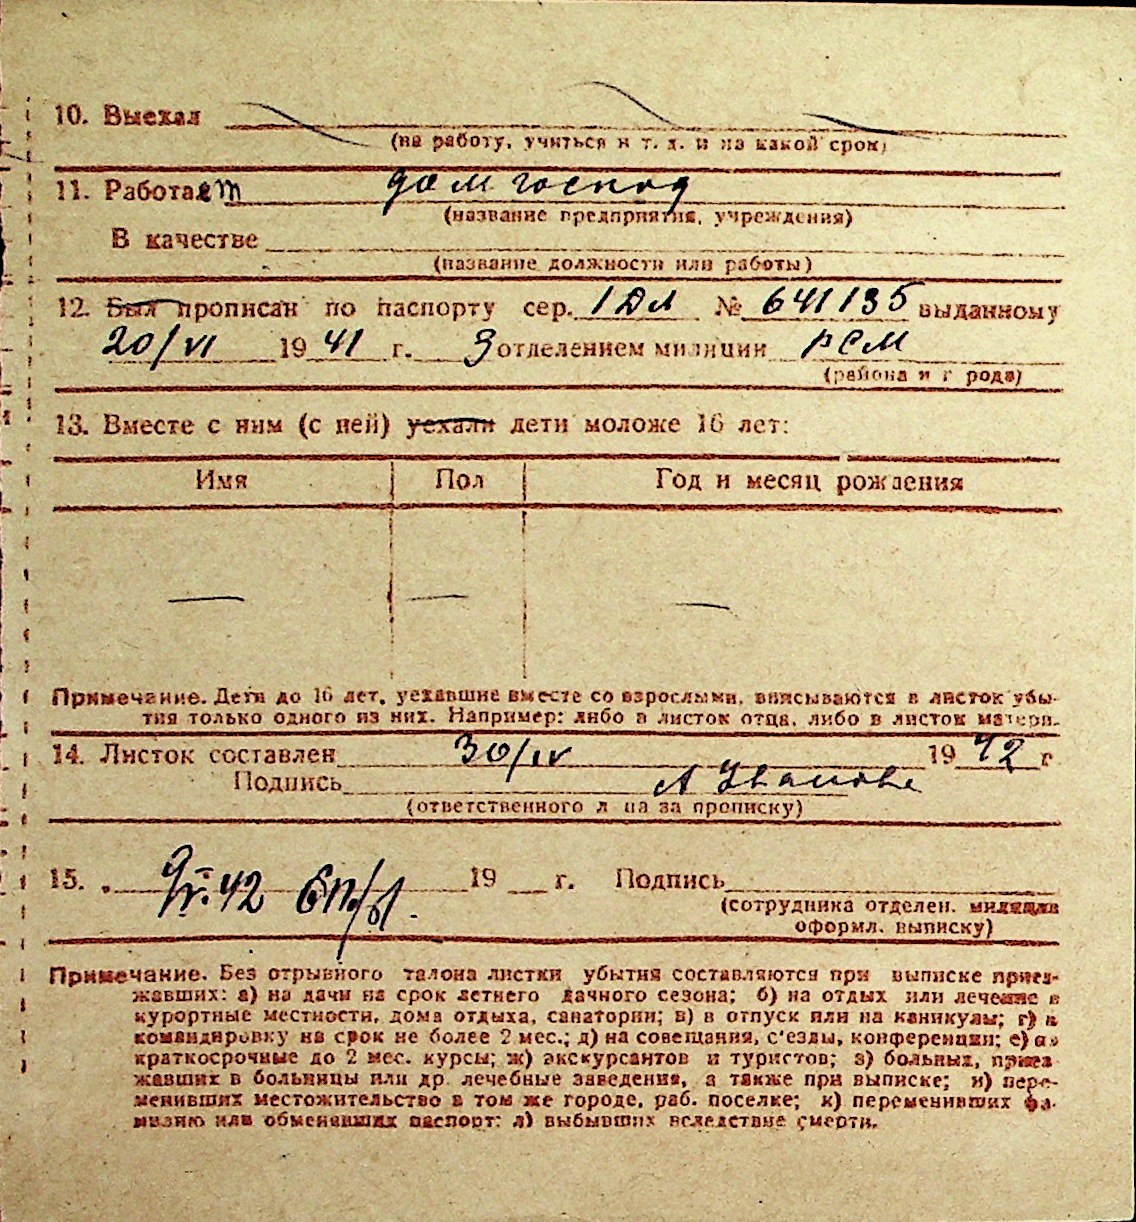 10. Выехал
(на работу, учиться и т. д. и на какой срок)
11. Работает дом господ
(название предприятия, учреждения)
В качестве
(название должности или работы)
12. Был прописан по паспорту сер. 1 ДЛ № 641135 выданному
20/VI 1941 г. 3 отделением милиции РСМ
(района и города)
13. Вместе с ним (с ней) уехали дети моложе 16 лет:
Имя Пол Год и месяц рождения
— — —
Примечание. Дети до 16 лет, уехавшие вместе со взрослыми, вписываются в листок убы-
тия только одного из них. Например: либо в листок отца, либо в листок матери.
14. Листок составлен 30/IV 1942 г
Подпись А Иванова
(ответственного лица за прописку)
15. 42 19 г. Подпись
(сотрудника отделен. милиции
оформл. выписку)
Примечание. Без отрывного талона листки убытия составляются при выписке приез-
жавших: а) на дачи на срок летнего дачного сезона; б) на отдых или лечение в
курортные местности, дома отдыха, санатории; в) в отпуск или на каникулы; г) в
командировку на срок не более 2 мес.; д) на совещания, с'езды, конференции; е) на
краткосрочные до 2 мес. курсы; ж) экскурсантов и туристов; з) больных, приез
жавших в больницы или др. лечебные заведения, а также при выписке; и) пере-
менивших местожительство в том же городе, раб. поселке; к) переменивших фа-
милию или обменявших паспорт; л) выбывших вследствие смерти.